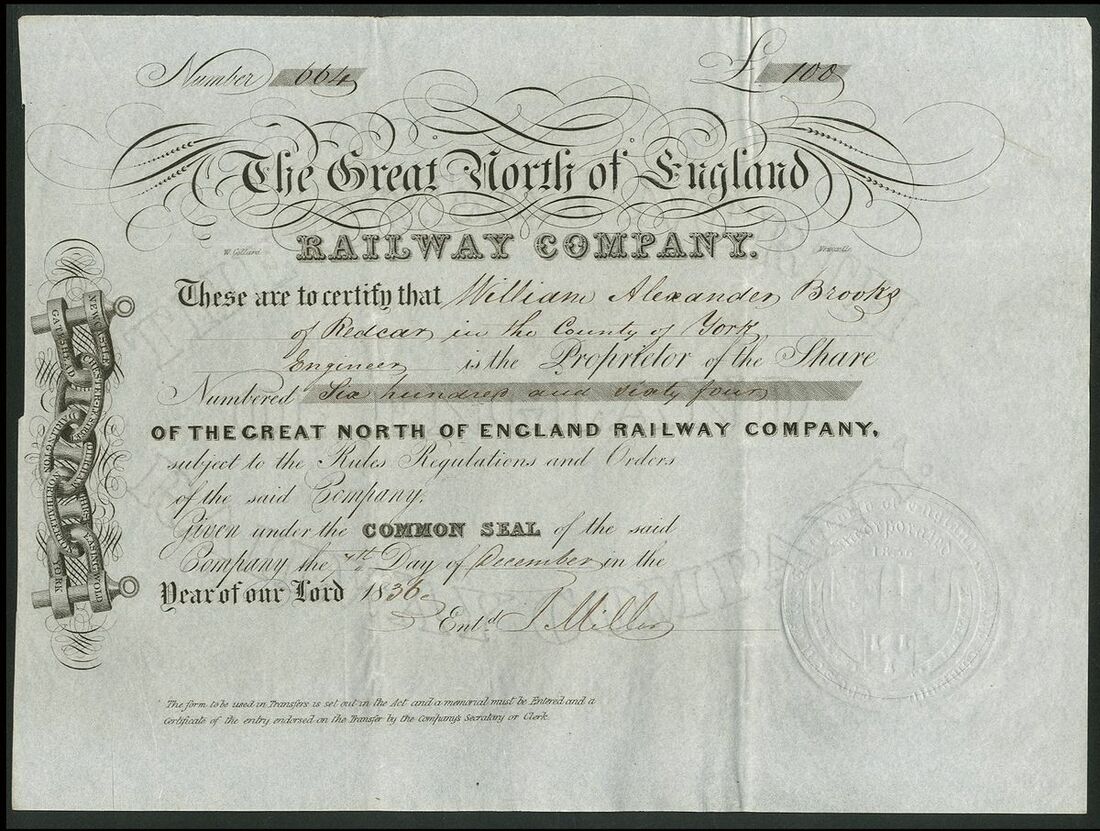 Number 664
£ 100
The Great North of England
RAILWAY COMPANY.
W. Collard
Newcastle
These are to certify that William Alexander Brooks
of Redcar in the County of York
Engineer is the Proprietor of the Share
Numbered Six hundred and sixty four
OF THE GREAT NORTH OF ENGLAND RAILWAY COMPANY,
subject to the Rules Regulations and Orders
of the said Company,
Given under the COMMON SEAL of the said
Company the 7th Day of December in the
Year of our Lord 1836
Entd. J Miller
The form to be used in Transfers is set out in the Act and a memorial must be Entered and a
Certificate of the entry endorsed on the Transfer by the Company's Secretary or Clerk.
NEWCASTLE
GATESHEAD
CHESTER-LE-STREET
DURHAM
DARLINGTON
NORTHALLERTON
THIRSK
EASINGWOLD
YORK